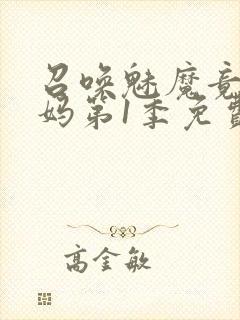 召唤魅魔竟
妈第1季免费
高金敏